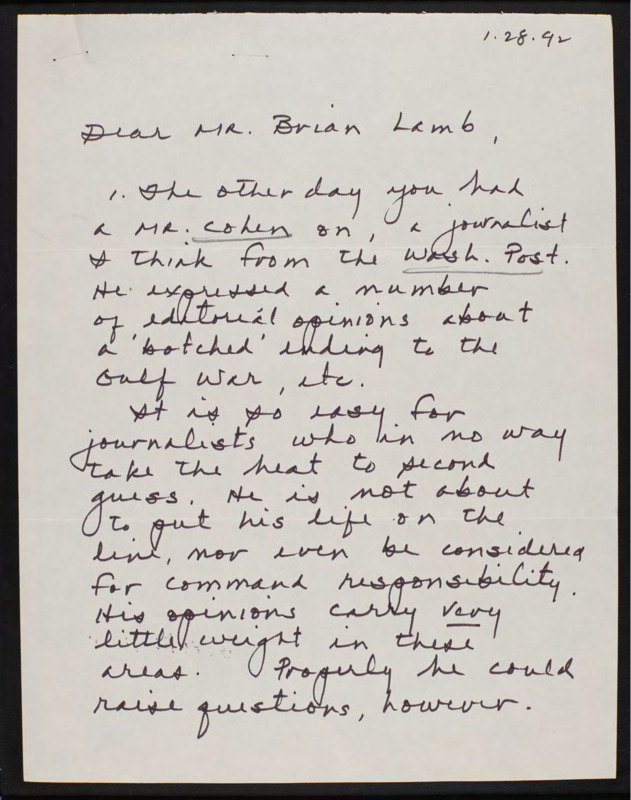 1.28.92
Dear Mr. Brian Lamb,
1. The other day you had
a Mr. Cohen on, a journalist
I think from the Wash. Post.
He expressed a number
of editorial opinions about
a 'botched' ending to the
Gulf War, etc.
It is so easy for
journalists who in no way
take the heat to second
guess. He is not about
to put his life on the
line, nor even be considered
for command responsibility.
His opinions carry very
little weight in these
areas. Properly he could
raise questions, however.